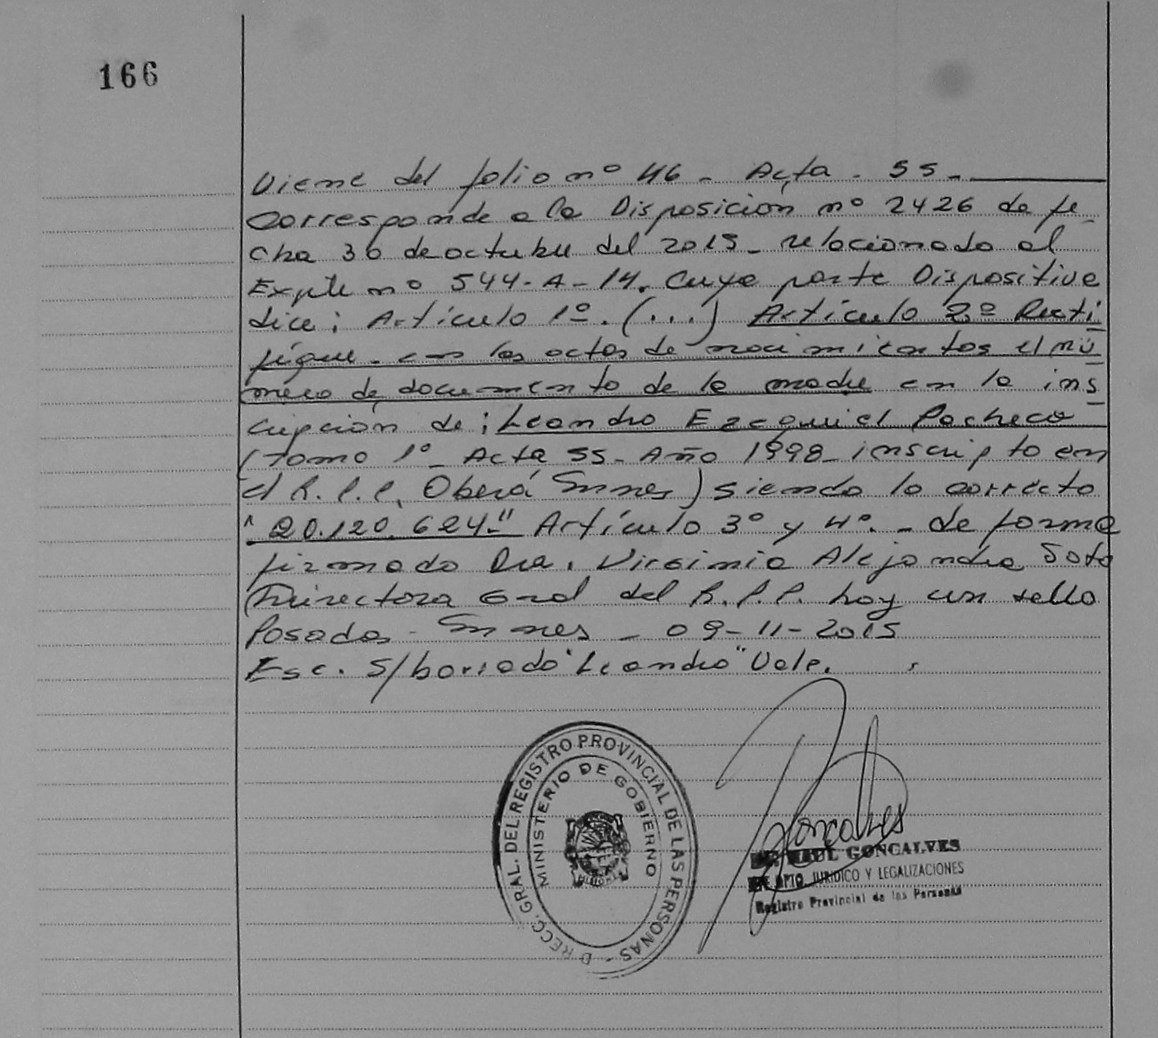 166
Viene del folio nº 46 - Acta - 55 -
Corresponde a la Disposición nº 2426 de fe-
cha 30 de octubre del 2015 - relacionado al
Expte nº 544-A-14. Cuya parte Dispositiva
dice: Artículo 1º. (...) Artículo 2º Recti
fíquese - en las actas de nacimientos el nú
mero de documento de la madre en la ins
cripción de: Leandro Ezequiel Pacheco
(Tomo 1º - Acta 55 - Año 1998 - inscripto en
el R.P.P. Oberá Mnes) siendo lo correcto
"20.120.624-" Artículo 3º y 4º. - de forma
firmado Dra. Virginia Alejandra Soto
Directora Gral del R.P.P. hay un sello
Posadas - Mnes - 09-11-2015
Esc. S/borrado "Leandro" Vale.
DIRECC. GRAL. DEL REGISTRO PROVINCIAL DE LAS PERSONAS -
MINISTERIO DE GOBIERNO
MISIONES
Goncalves
RAUL GONCALVES
DPTO. JURIDICO Y LEGALIZACIONES
Registro Provincial de las Personas